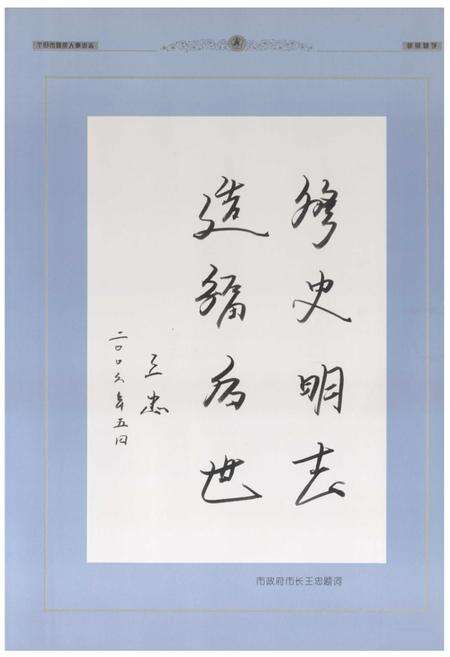 修史明志
造福后世
王忠
二〇〇六年五月
市政府市长王忠题词